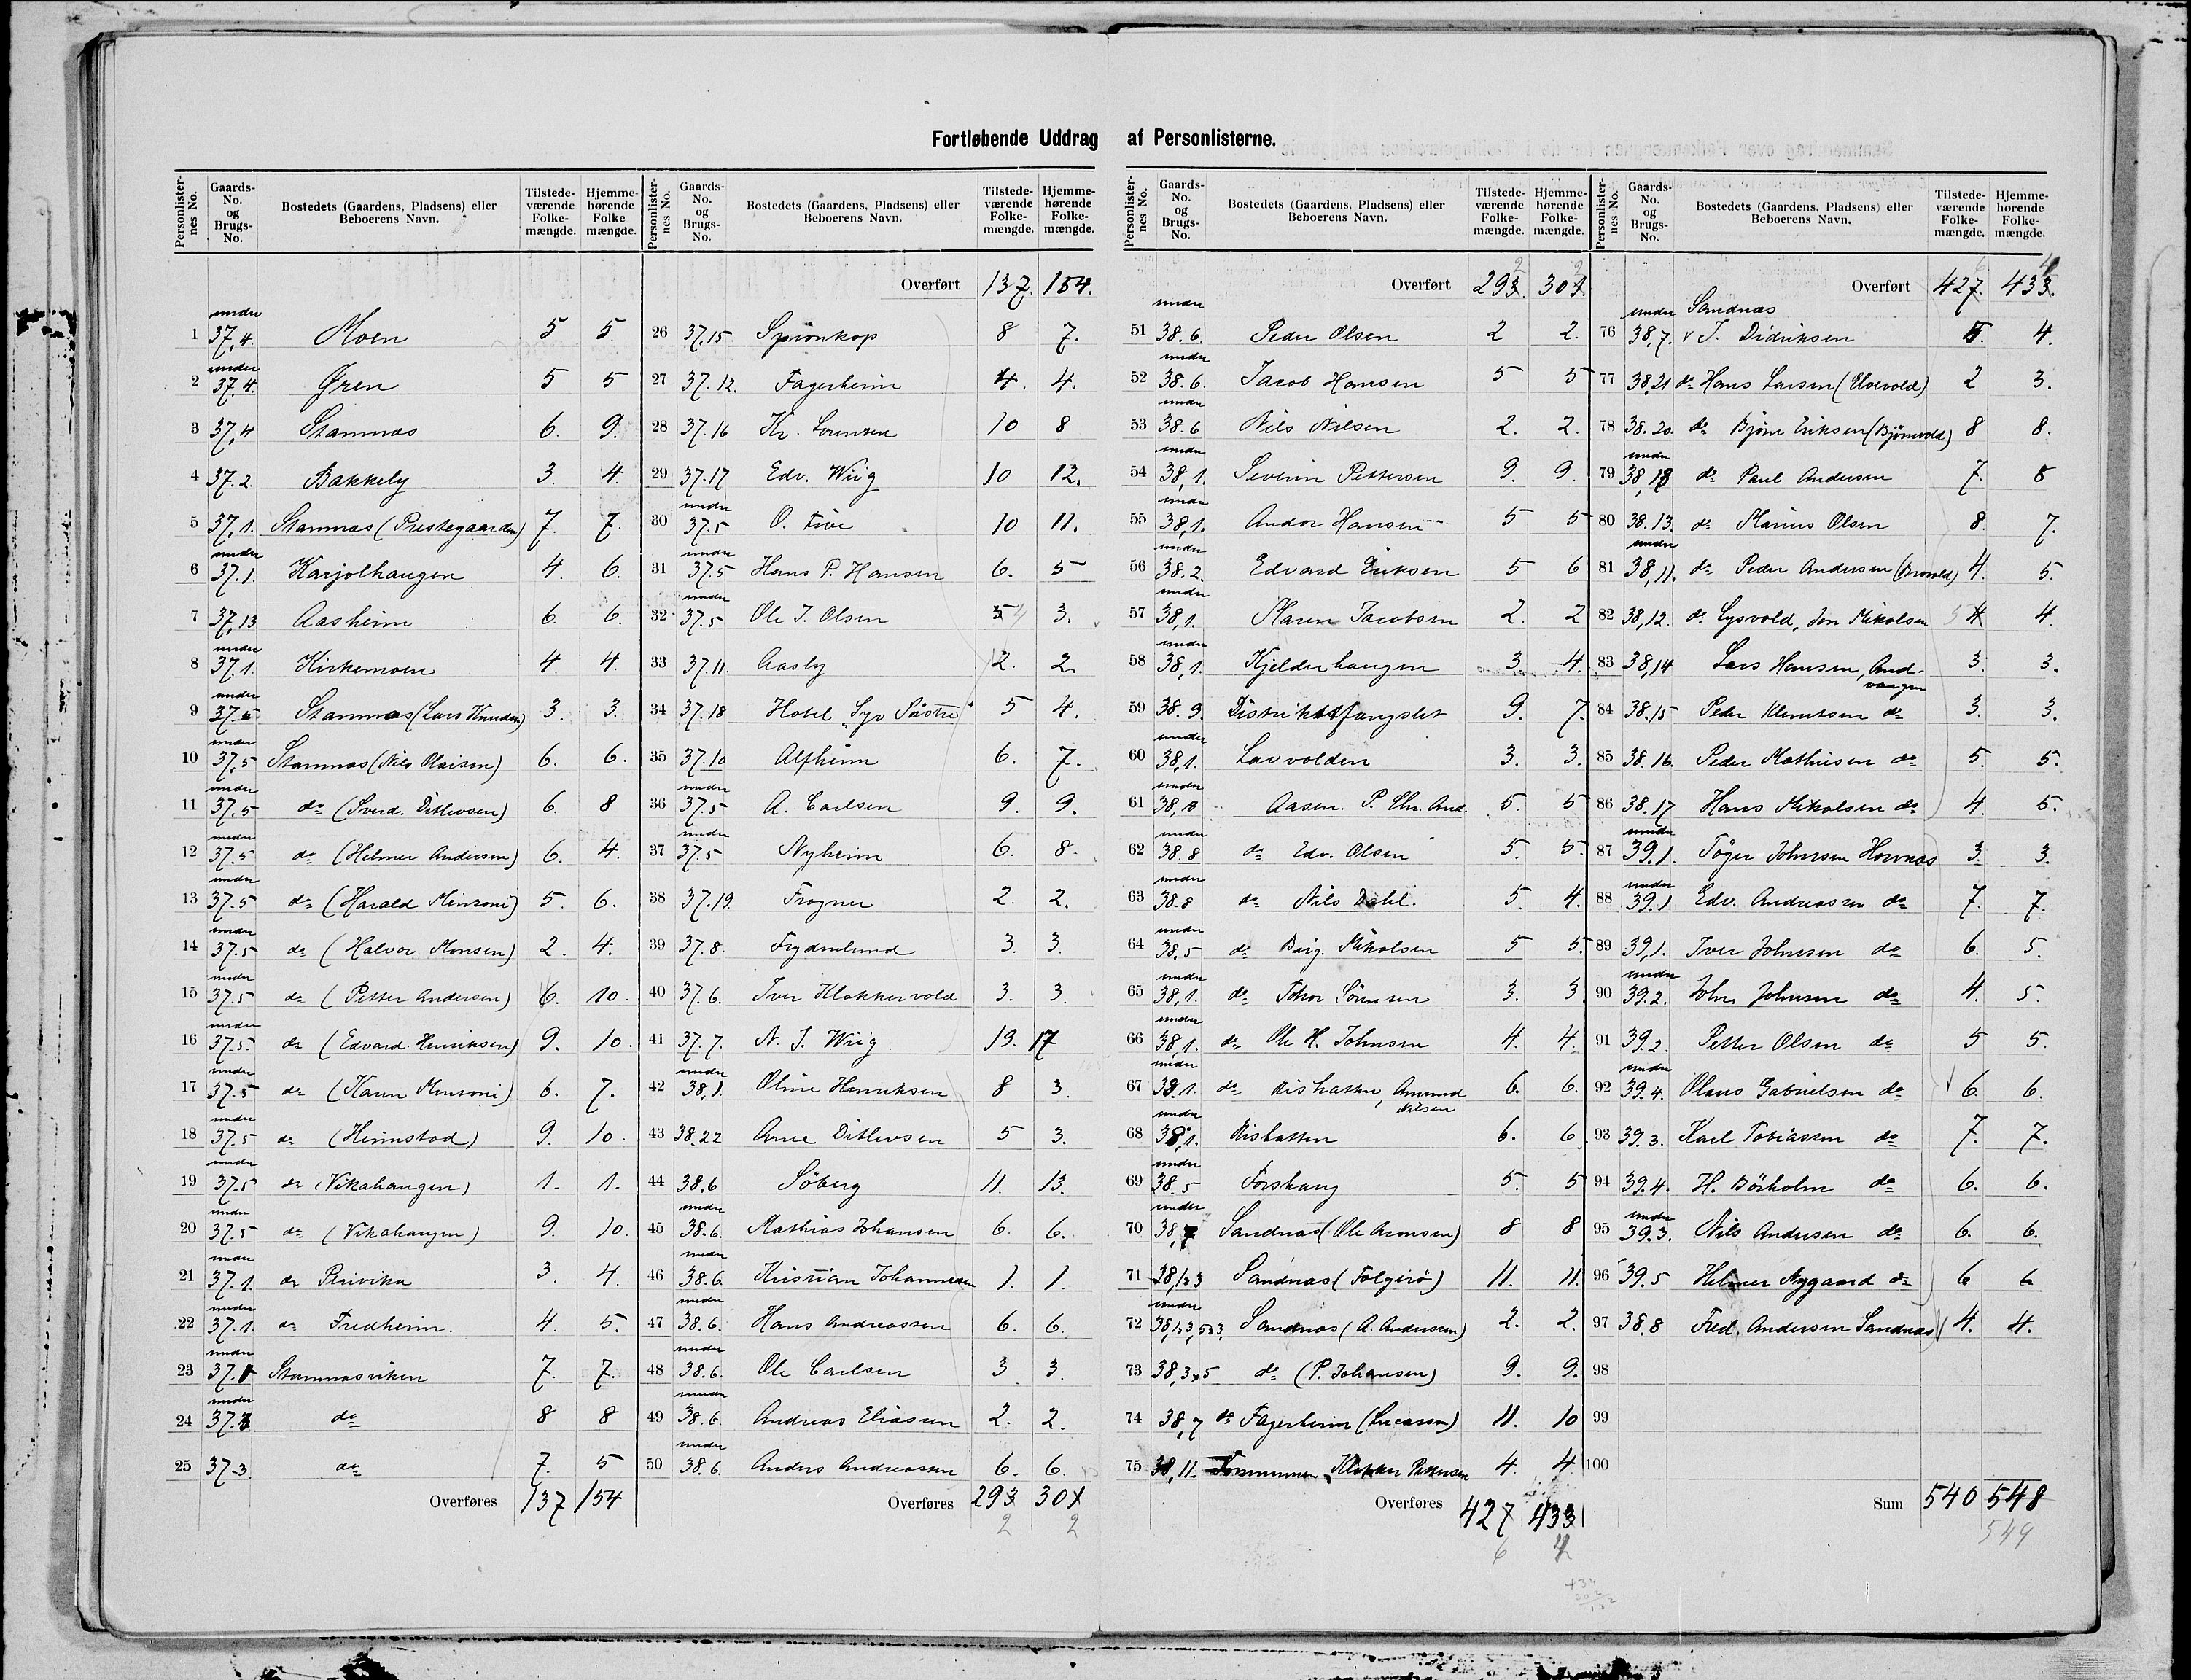 Fortløbende Uddrag af Personlisterne.
Personlister-nes No. Gaards-No. og Brugs-No. Bostedets (Gaardens, Pladsens) eller Beboerens Navn. Tilstede-værende Folke-mængde. Hjemme-hørende Folke mængde.
1 under 37,4. Moen 5 5.
2 under 37.4. Øren 5 5
3 37,4 Stamnes 6. 9.
4 37.2. Bakkely 3. 4.
5 37,1. Stamnæs (Prestegaarden) 7. 7.
6 under 37.1. Karjolhaugen 4. 6.
7 37,13 Aasheim 6. 6.
8 under 37.1. Kirkemoen 4. 4.
9 under 37.5 Stamnæs (Lars Knudsen) 3. 3.
10 under 37,5 Stamnæs (Nils Olaisen) 6. 6.
11 under 37.5 do (Sverd. Ditlevsen) 6. 8
12 under 37.5 do (Helmer Andersen) 6. 4.
13 under 37.5 do (Harald Minsoni) 5. 6.
14 under 37.5 do (Halvor Monsen) 2. 4.
15 under 37.5 do (Petter Andersen) 6. 10.
16 under 37.5. do (Edvard Henriksen) 9. 10.
17 under 37.5 do (Karen Minsoni) 6. 7.
18 under 37.5 do (Heimstad) 9. 10.
19 under 37.5 do (Vikahaugen) 1. 1.
20 under 37.5 do (Vikahaugen) 9. 10.
21 under 37.1. do Perivika 3. 4.
22 under 37.1. do Fredheim. 4. 5.
23 under 37.1 Stamnæsviken 7. 7.
24 under 37.3 do 8 8
25 37.3. do 7. 5
Overføres 137 154
Personlister-nes No. Gaards-No. og Brugs-No. Bostedets (Gaardens, Pladsens) eller Beboerens Navn. Tilstede-værende Folke-mængde. Hjemme-hørende Folke-mængde.
Overført 137. 154.
26 37.15 Spionkop 8 7.
27 37.12. Fagerheim 4. 4.
28 37.16 Kr. Lorentzen 10 8
29 37.17 Edv. Wiig 10 12.
30 under 37.5 O. Five 10 11.
31 under 37.5 Hans P. Hansen 6. 5
32 under 37.5 Ole J. Olsen 5 4 3.
33 37.11. Aasly 2. 2
34 37.18 Hotel "Syv Søstre" 5 4.
35 37.10 Alfheim 6. 7.
36 under 37.5 A. Carlsen 9. 9.
37 under 37.5 Nyheim 6. 8.
38 37.19. Frogner 2. 2.
39 37.8. Frydenlund 3. 3.
40 37.6. Iver Klokkervold 3. 3.
41 37.7. N. J. Wiig 19. 17
42 under 38,1. Oline Henriksen 8 3.
43 38.22 Arne Ditlevsen 5 3.
44 38.6 Søberg 11. 13.
45 under 38.6. Mathias Johansen 6. 6.
46 under 38.6. Kristian Johannesen 1. 1.
47 under 38.6. Hans Andreassen 6. 6.
48 under 38.6. Ole Carlsen 3 3
49 under 38.6. Andreas Eliassen 2. 2.
50 under 38.6. Anders Andreassen 6. 6.
Overføres 293 301
2 2
Personlister-nes No. Gaards-No. og Brugs-No. Bostedets (Gaardens, Pladsens) eller Beboerens Navn. Tilstede-værende Folke-mængde. Hjemme-hørende Folke-mængde.
Overført 293. 2 301. 2
51 under 38.6. Peder Olsen 2 2.
52 under 38.6. Jacob Hansen 5 5
53 under 38.6 Nils Nilsen 2. 2.
54 under 38,1. Severin Pettersen 9. 9.
55 under 38,1. Andor Hansen 5 5
56 under 38.2. Edvard Eriksen 5 6
57 under 38,1. Maren Jacobsen 2. 2
58 under 38,1. Kjelderhaugen 3. 4.
59 38.9. Distriktsfængslet 9. 7.
60 under 38,1. Lavvolden 3. 3.
61 under 38,8 Aasen. P. Chr. And. 5. 5
62 under 38.8 do Edv. Olsen 5. 5.
63 under 38.8 do Nils Dahl. 5. 4.
64 under 38.5 do Birg. Mikalsen 5 5.
65 under 38,1. do Thor Sørensen 3. 3.
66 under 38,1. do Ole H. Johnsen 4. 4.
67 under 38.1. do Rishatten, Amund Nilsen 6. 6.
68 under 38,1. Rishatten 6. 6.
69 under 38.5 Forshaug 5. 5
70 under 38,7 Sandnæs (Ole Aronsen) 8 8
71 38,123 Sandnæs (Falgerø) 11. 11.
72 under 38,123,533. Sandnæs (A. Andersen) 2. 2.
73 38,3,5 do (P. Johansen) 9. 9.
74 38,7 do Fagerheim (Lucassen) 11. 10
75 38,11. Klokker Pettersen 4. 4.
Overføres 427 433
6
434
302
132
Personlister-nes No. Gaards-No. og Brugs-No. Bostedets (Gaardens, Pladsens) eller Beboerens Navn. Tilstede-værende Folke-mængde. Hjemme-hørende Folke-mængde.
Overført 427. 6 433. 4
76 under 38,7. Sandnæs v J. Didriksen 5. 4.
77 38.21 do Hans Larsen (Elvevold) 2 3.
78 38.20. do Bjørn Eriksen (Bjørnvold) 8 8.
79 under 38,18 do Paul Andersen 7. 8
80 38.13. do Marius Olsen 8. 7.
81 under 38,11. do Peder Andersen (Brovold) 4. 5.
82 38,12. do Lysvold, Jon Mikalsen 5 4 4.
83 38,14 Lars Hansen, Andvaagen 3. 3.
84 38.15 Peder Klemetsen do 3. 3.
85 38.16. Peder Mathiesen do 5. 5.
86 38.17 Hans Mikalsen do 4. 5.
87 under 39.1. Tøger Johnsen Horvnæs 3. 3.
88 under 39.1 Edv. Andreassen do 7. 7.
89 39,1. Iver Johnsen do 6. 5.
90 under 39.2. John Johnsen do 4. 5.
91 39.2. Petter Olsen do 5 5.
92 under 39.4. Olaus Gabrielsen do 6. 6.
93 39.3. Karl Tobiassen do 7. 7.
94 39.4. H. Børholm do 6. 6.
95 under 39.3. Nils Andersen do 6. 6.
96 39.5 Helmer Nygaard do 6 6
97 38.8 Fred. Andersen Sandnæs 4. 4.
98
99
100
Sum 540 548
549